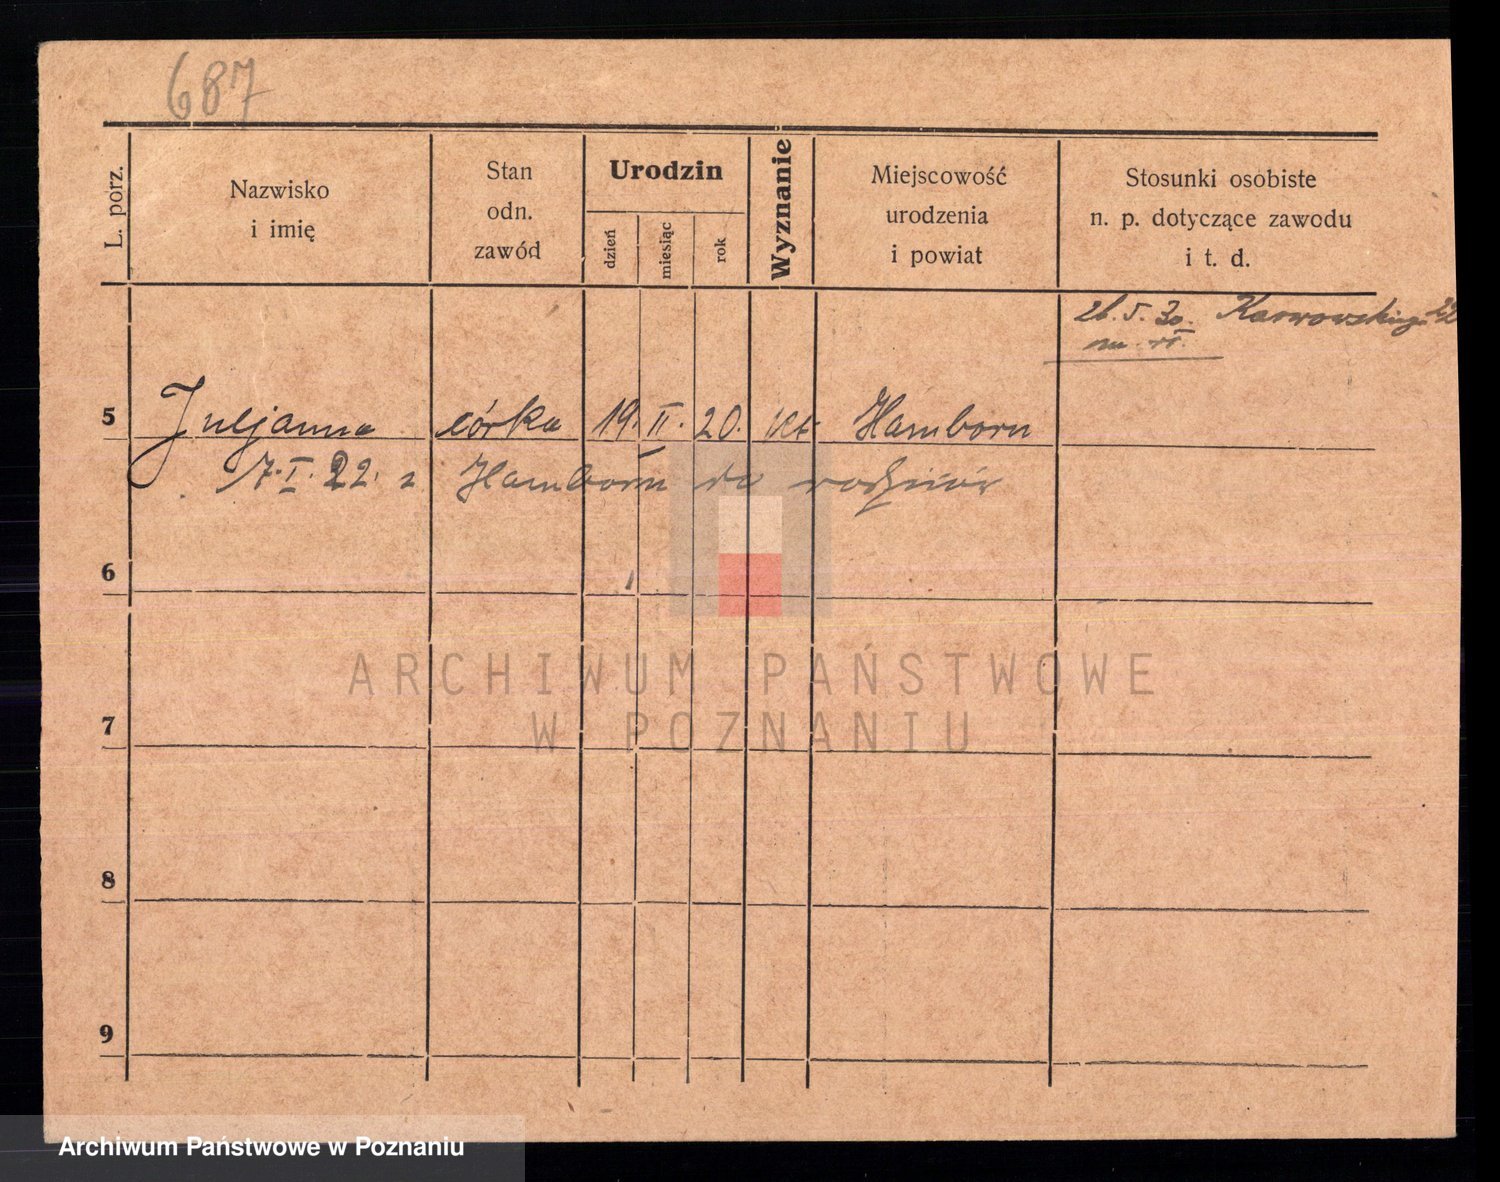 687
L. porz.
Nazwisko
i imię
Stan
odn.
zawód
Urodzin
dzień
miesiąc
rok
Wyznanie
Miejscowość
urodzenia
i powiat
Stosunki osobiste
n. p. dotyczące zawodu
i t. d.
26. 5. 30. Karwowskiego
5 Juljanna córka 19. II. 20. kat. Hamborn
17. I. 22. z Hamborn do rodziców
6
7
8
9
ARCHIWUM PAŃSTWOWE
W POZNANIU
Archiwum Państwowe w Poznaniu